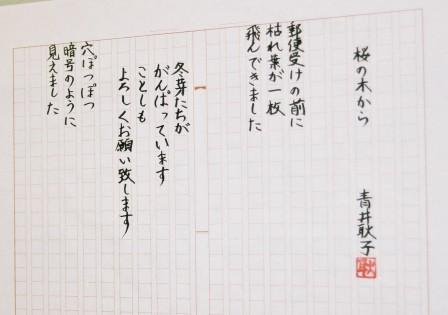 桜の木から
青井耿子
郵便受けの前に
枯れ葉が一枚
飛んできました
冬芽たちが
がんばっています
ことしも
よろしくお願い致します
穴ぽつぽつ
暗号のように
見えました